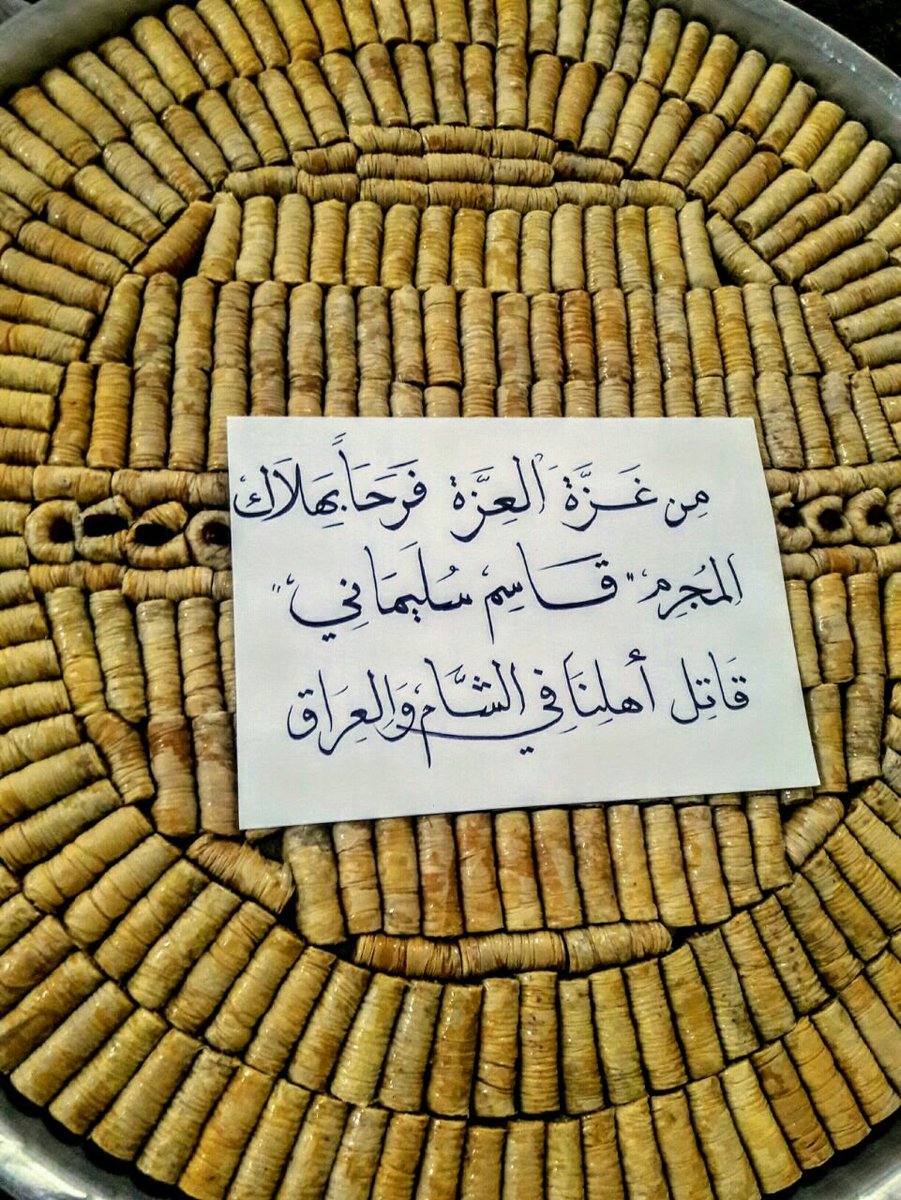 مِن غَزَّة العِزَّة فَرَحَاً بِهَلَاك
المُجرِم "قَاسِم سُلَيمَانِي"
قَاتِل أهلِنَا فِي الشَّام وَالعِرَاق